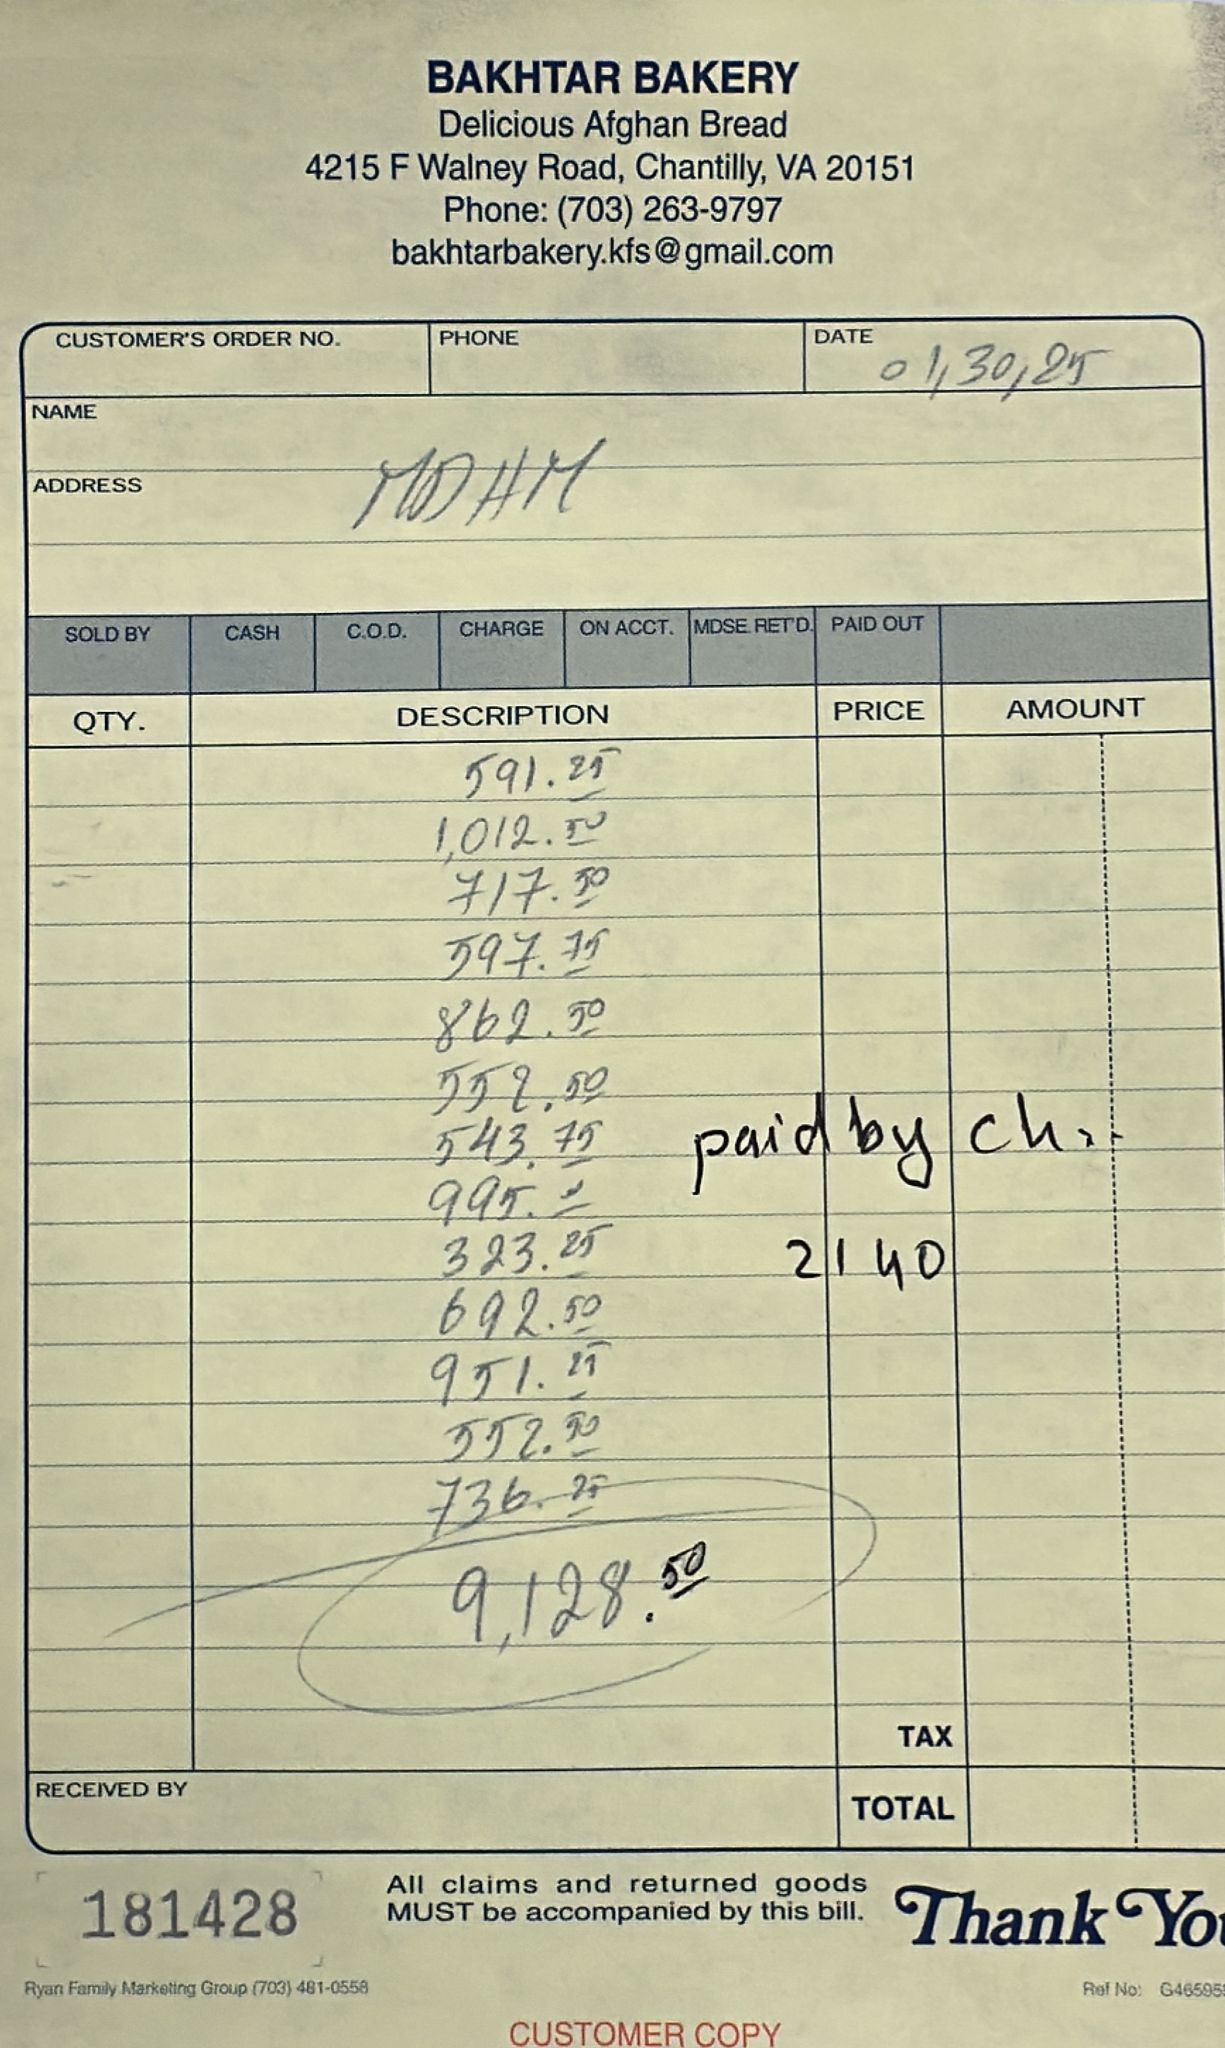 BAKHTAR BAKERY
Delicious Afghan Bread
4215 F Walney Road, Chantilly, VA 20151
Phone: (703) 263-9797
bakhtarbakery.kfs@gmail.com
CUSTOMER'S ORDER NO. PHONE DATE 01,30,25
NAME
ADDRESS MDHM
SOLD BY CASH C.O.D. CHARGE ON ACCT. MDSE. RET'D. PAID OUT
QTY. DESCRIPTION PRICE AMOUNT
591.25
1,012.50
717.50
597.75
862.50
552.50
543.75 paid by ch..
995.-
323.25 2140
692.50
951.25
552.50
736.25
9,128.50
TAX
RECEIVED BY TOTAL
181428 All claims and returned goods
MUST be accompanied by this bill. Thank You
Ryan Family Marketing Group (703) 481-0558 Ref No: G465958
CUSTOMER COPY